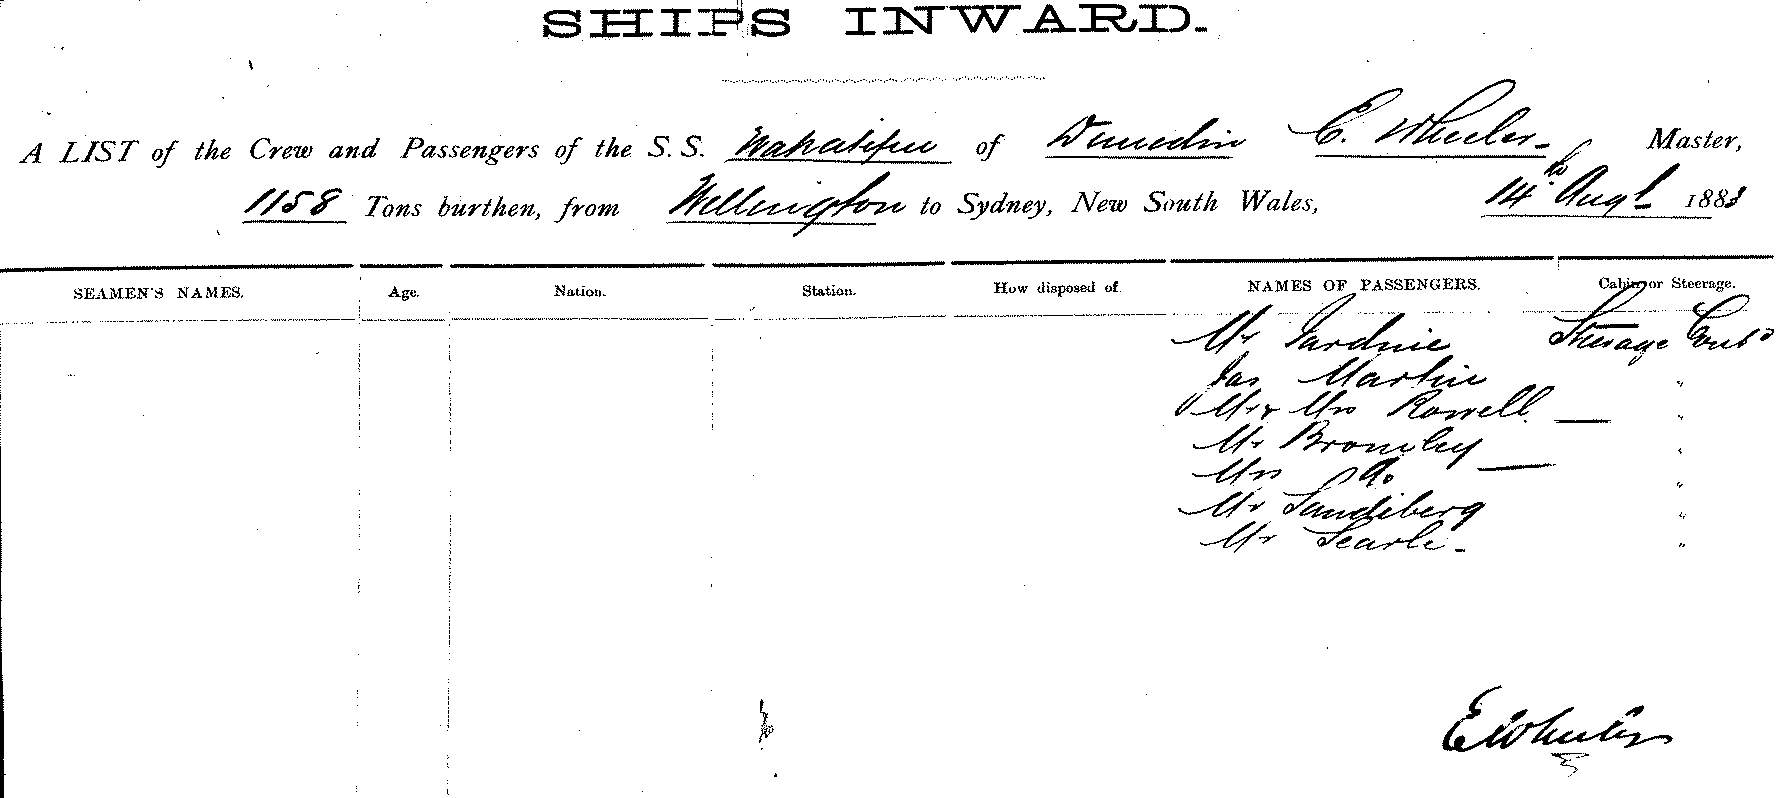 SHIPS INWARD.
A LIST of the Crew and Passengers of the S.S. Wakatipu of Dunedin E. Wheeler Master,
1158 Tons burthen, from Wellington to Sydney, New South Wales, 14th Augt 1883
SEAMEN'S NAMES. Age. Nation. Station. How disposed of. NAMES OF PASSENGERS. Cabin or Steerage.
Mr Jardine Steerage
Jas Martin "
Mr & Mrs Rowell — "
Mr Bromley — "
Mrs Do "
Mr Sandiberg "
Mr Searle - "
E Wheeler